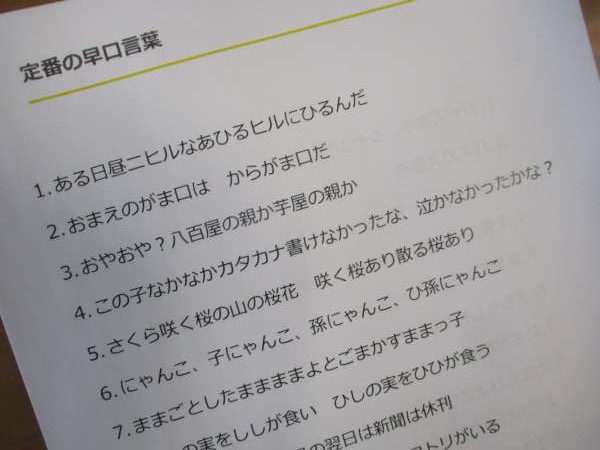 定番の早口言葉
1. ある日昼ニヒルなあひるヒルにひるんだ
2. おまえのがま口は　からがま口だ
3. おやおや？八百屋の親か芋屋の親か
4. この子なかなかカタカナ書けなかったな、泣かなかったかな？
5. さくら咲く桜の山の桜花　咲く桜あり散る桜あり
6. にゃんこ、子にゃんこ、孫にゃんこ、ひ孫にゃんこ
7. ままごとしたままままよとごまかすままっ子
の実をししが食い　ひしの実をひひが食う
の翌日は新聞は休刊
トリがいる